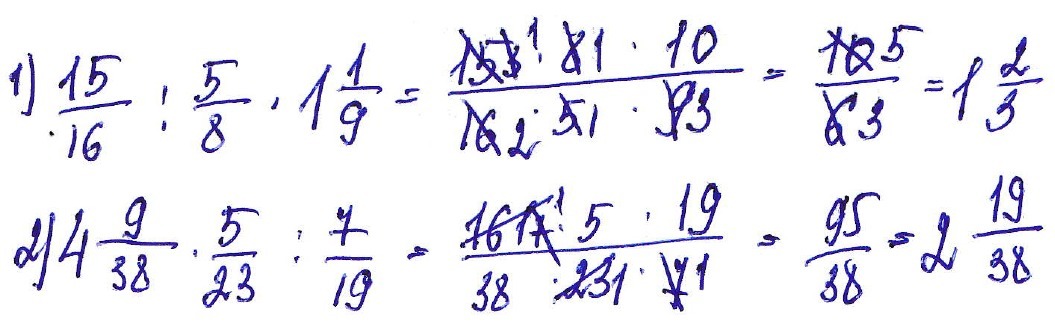 1) 15/16 : 5/8 · 1 1/9 = (15 3 1 · 8 1 · 10)/(16 2 · 5 1 · 9 3) = (10 5)/(6 3) = 1 2/3
2) 4 9/38 · 5/23 : 7/19 = (161 7 1 · 5 · 19)/(38 · 23 1 · 7 1) = 95/38 = 2 19/38